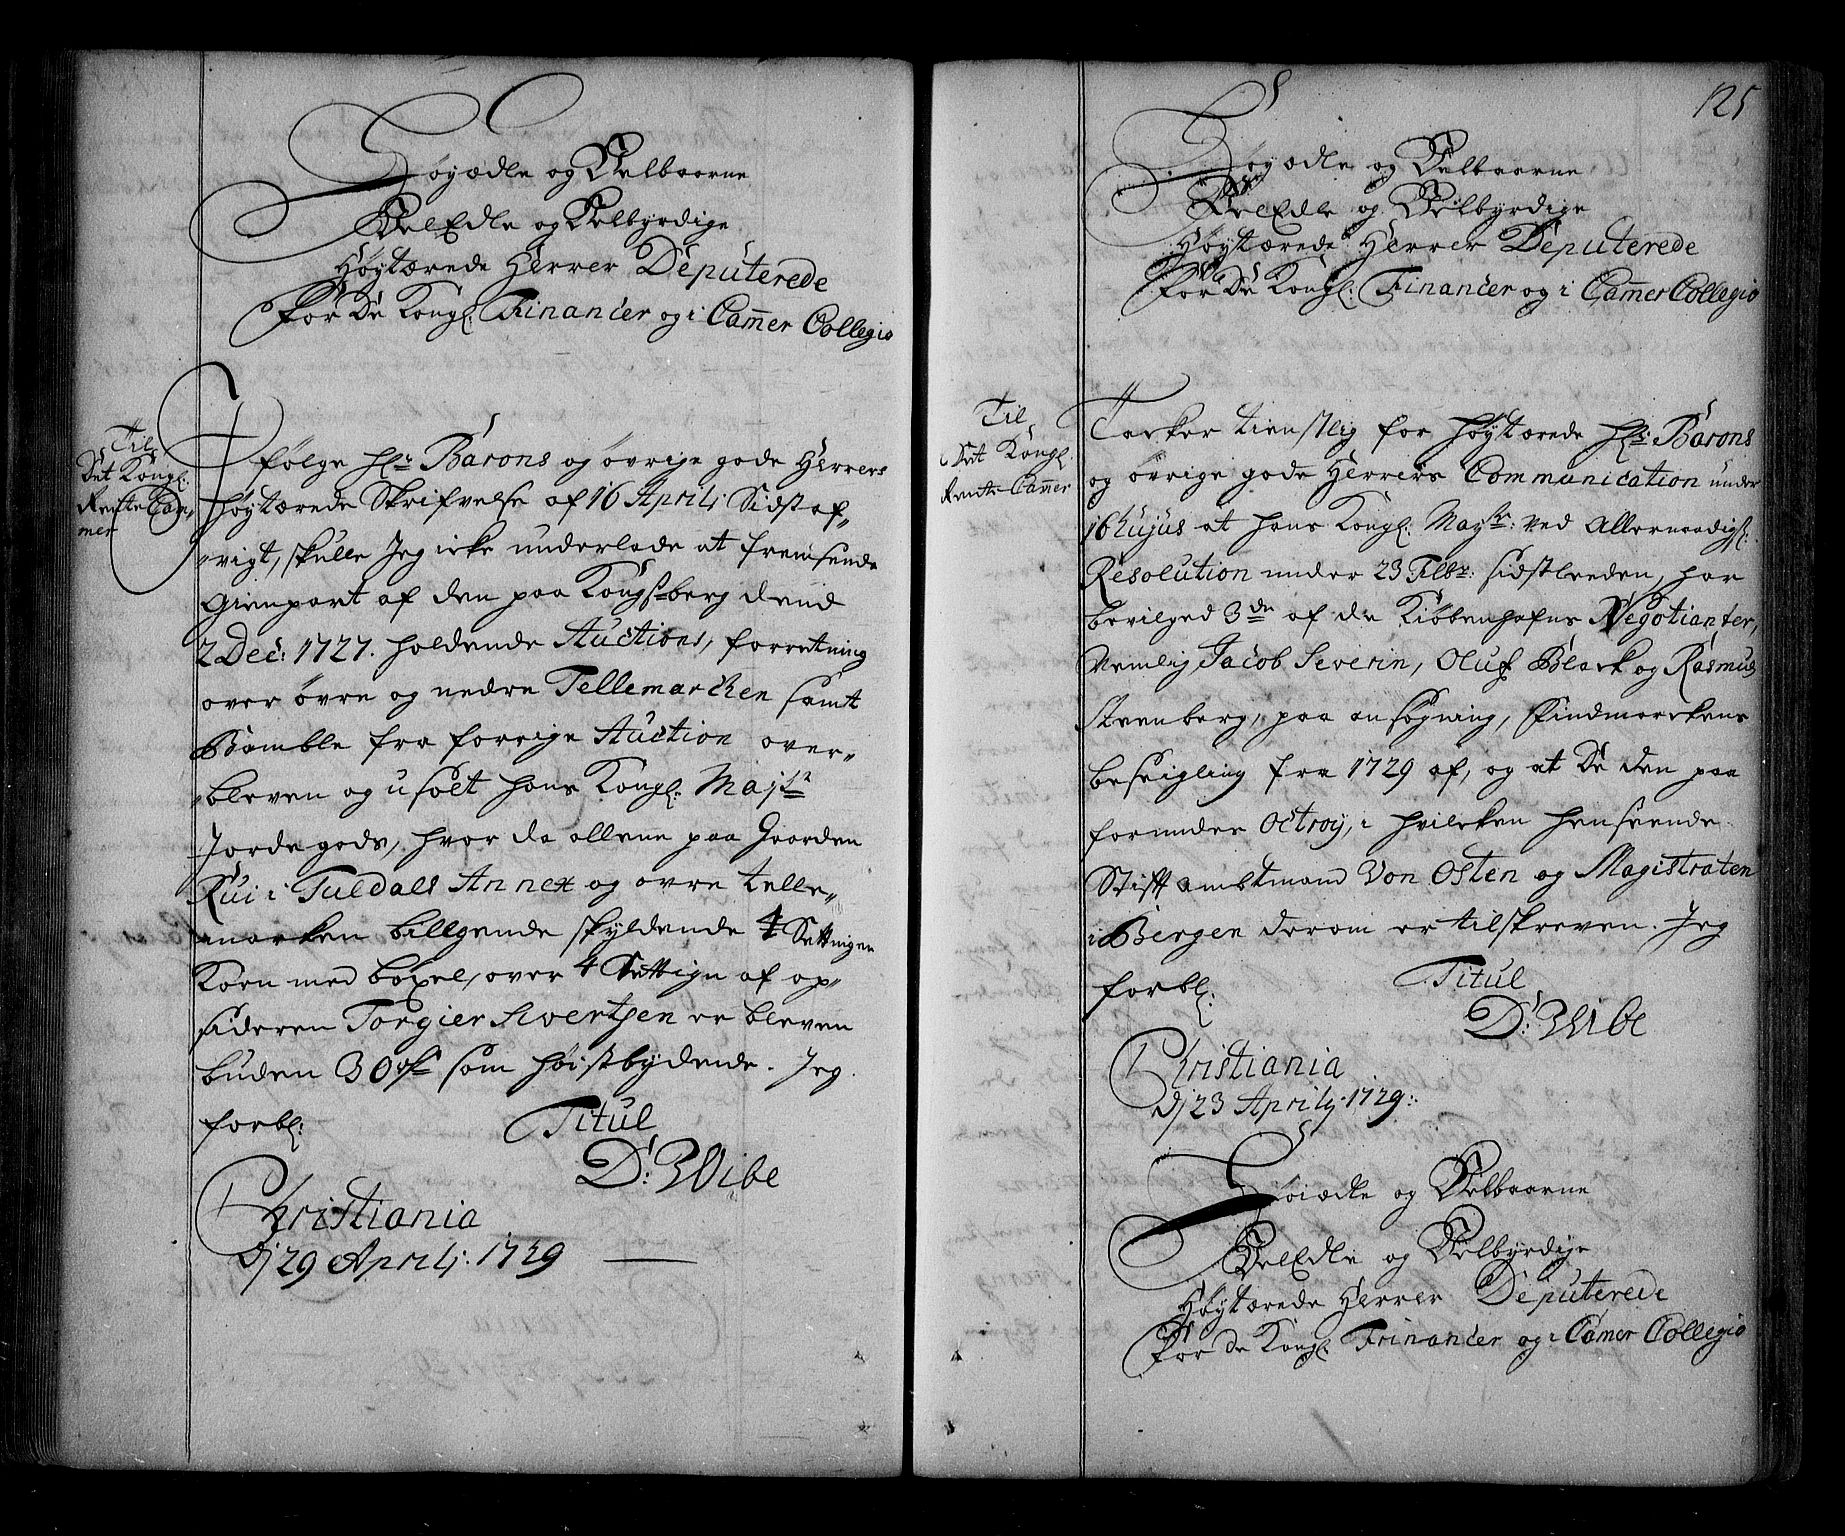 Høyædle og Velbaarne
VelEdle og Velbyrdige
Høytærede Herrer Deputerede
For De Kongl: Financer og i Cammer Collegio
Til
Det Kongl:
Rente Cam-
mer
I følge Hr: Barons og øvrige gode Herrers
høytærede Skrifvelse af 16 Aprilj Sidst af-
vigt, skulle Jeg icke underlade at fremsende
Gienpart af den paa Kongsberg dend
2 Dec: 1727. holdende Auctions, forretning
over øvre og nedre Tellemarchen samt
Bamble fra forrige Auction over-
bleven og usolt hans Kongl: Majts
Jordegods, hvor da allene paa Gaarden
Rui i Tuddals Annex og øvre Telle-
marken billgende skyldende 4 Settinger
Korn med boxel, over 4 Settign af op-
sideren Torgier Sivertsen er bleven
buden 30 rdr som høistbydende. Jeg
forbl:
Titul
D: Wibe
Christiania
dj 29 Aprilj: 1729
125
Høyædle og Velbaarne
VelEdle og Velbyrdige
Høytærede Herrer Deputerede
For De Kongl: Financer og i Cammer Collegio
Til
Det Kongl:
Rente Cammer
Tacker tienstlig for høytærede Hr: Barons
og øvrige gode Herrers Communication under
16 hujus at hans Kongl: Mayts: ved allernaadigst:
Resolution under 23 Febr: sidstleeden, har
bevilged 3de af de Kiøbenhafns Negotianter,
Nemlig Jacob Severin, Oluf Blach og Rasmus
Steenberg, paa ansøgning, Findmarckens
beseigling fra 1729 af, og at De den paa
forunder Octroy, i hvilcken henseende
Stiftambtmand Von Osten og Magistraten
i Bergen derom er tilskreven. Jeg
forbl:
Titul
D: Wibe
Christiania
dj 23 Aprilj. 1729:
Høiædle og Velbaarne
VelEdle og Velbyrdige
Høytærede Herrer Deputerede
For de Kongl: Financer og i Camer Collegio